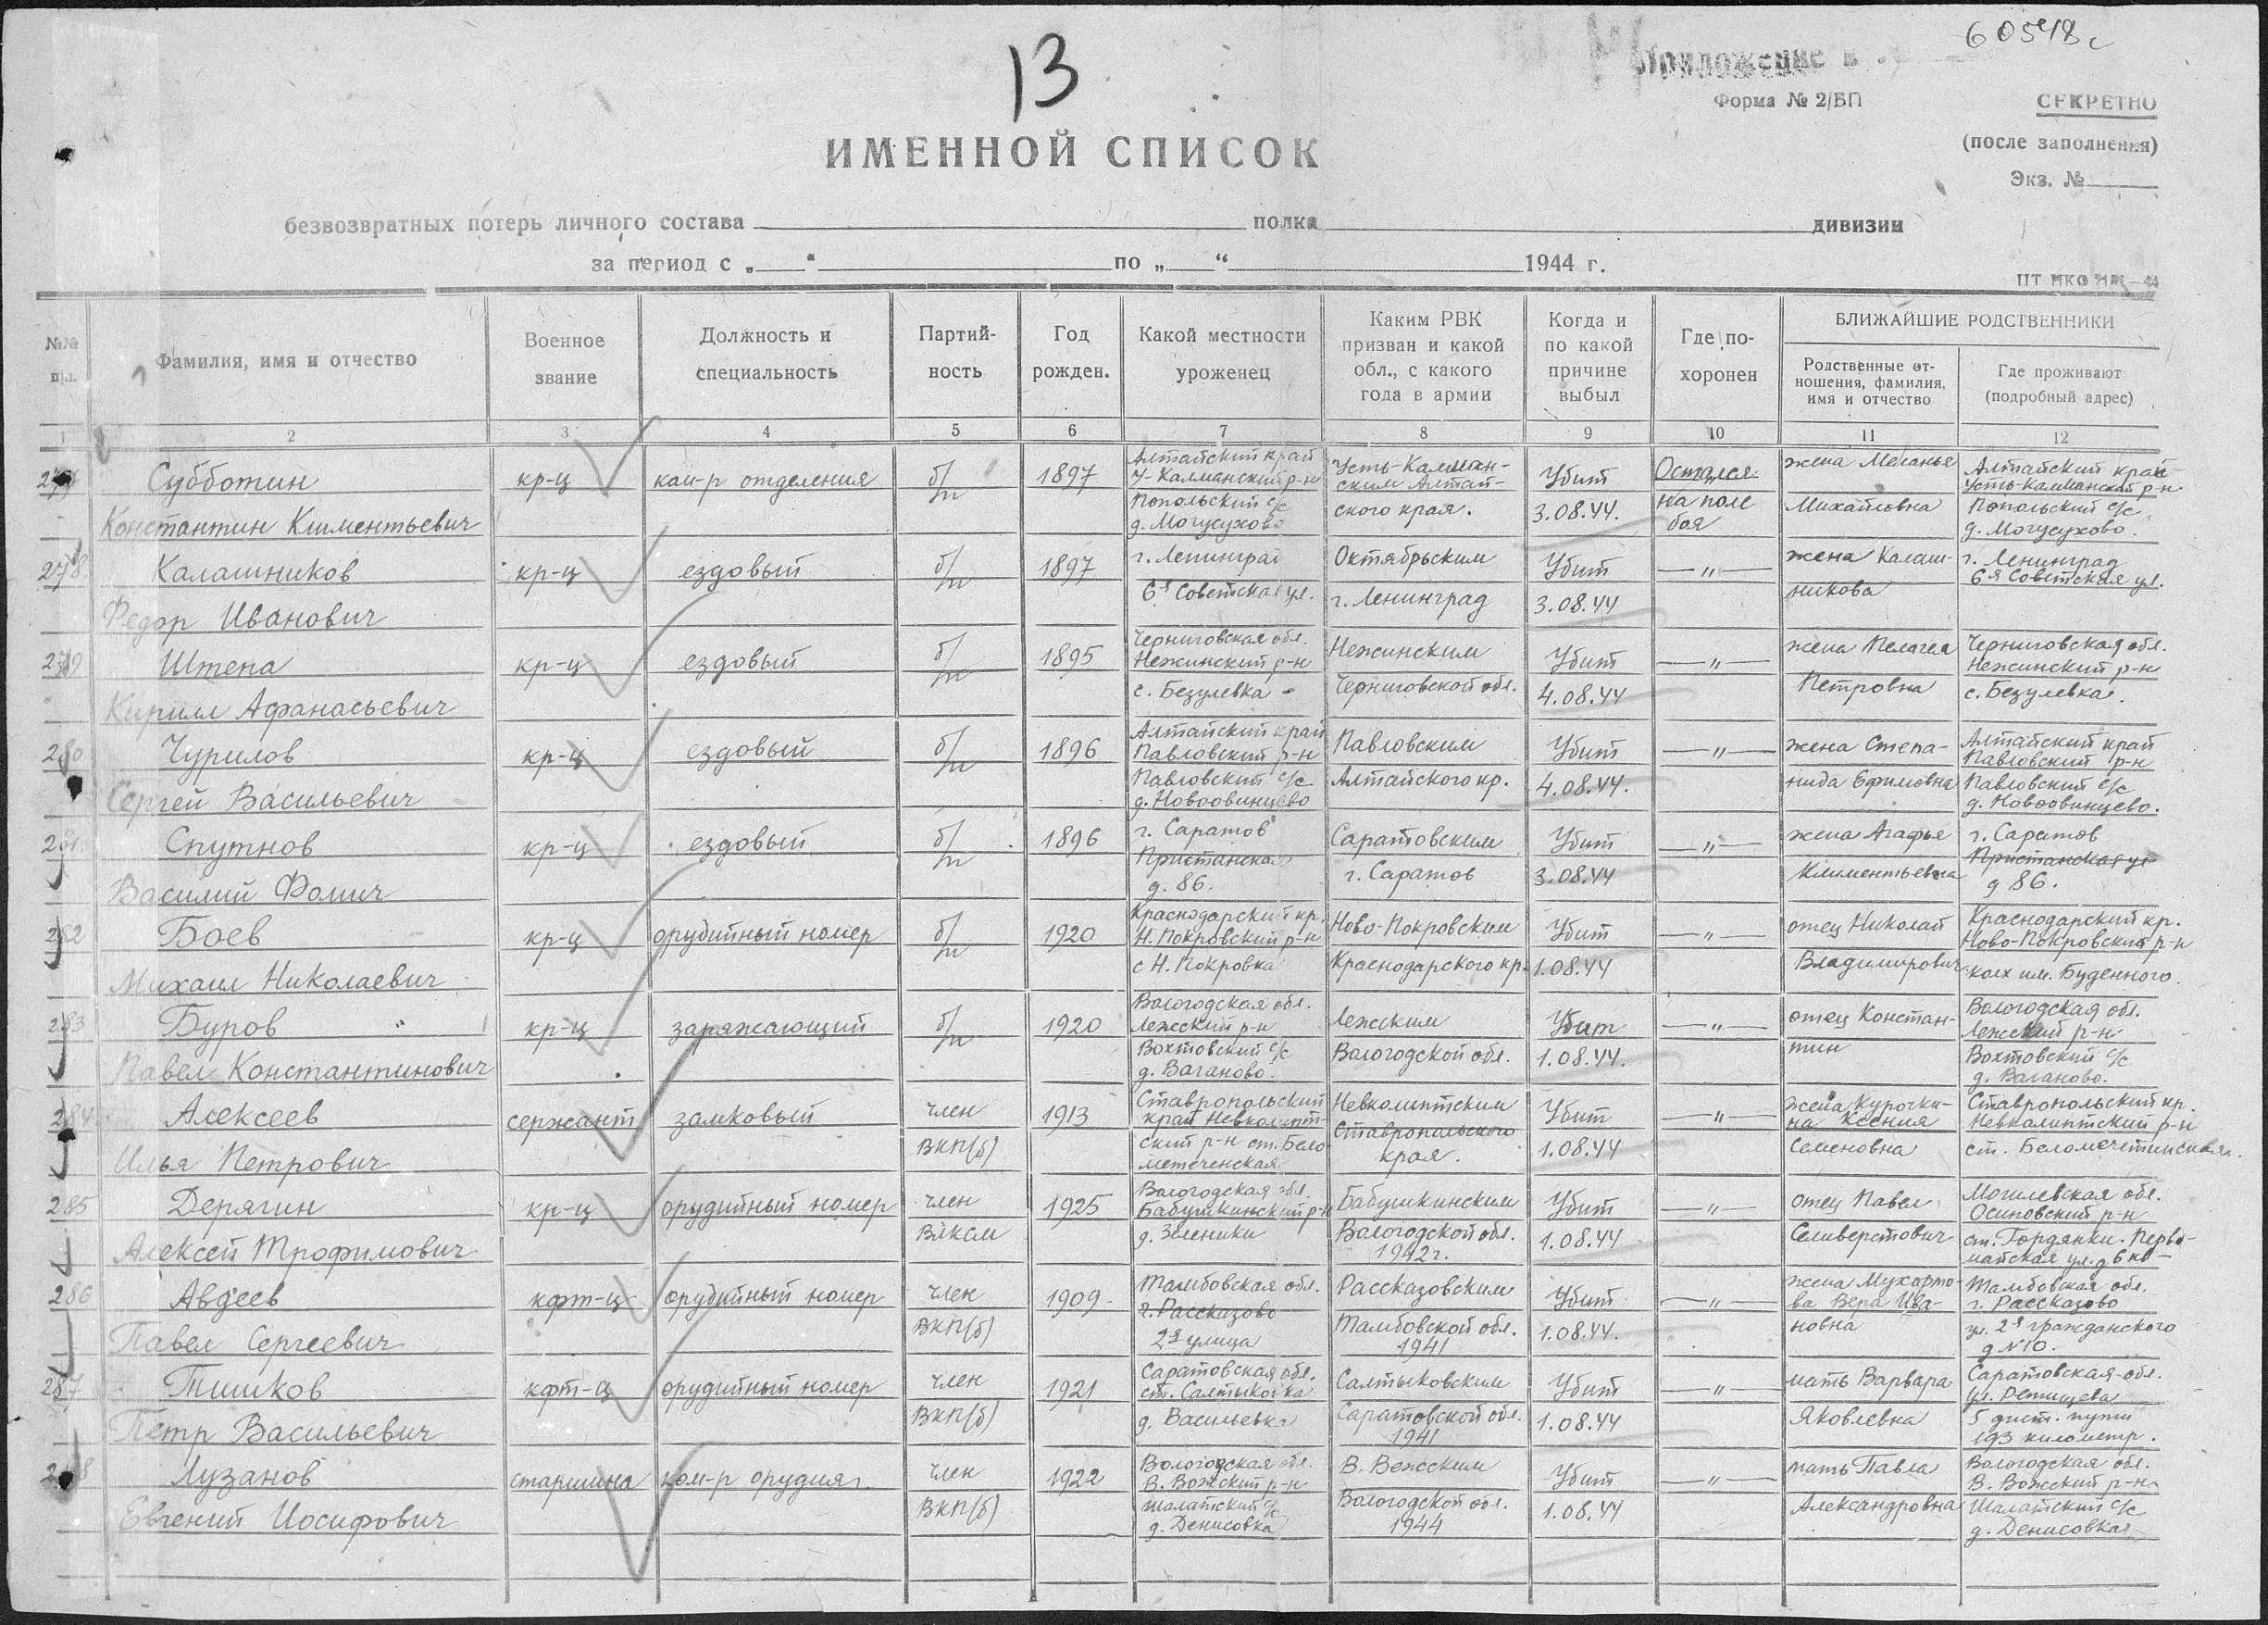 13
60548с
Приложение к
Форма № 2/БП
СЕКРЕТНО
(после заполнения)
Экз. №
ИМЕННОЙ СПИСОК
безвозвратных потерь личного состава полка дивизии
за период с „ “ по „ “ 1944 г.
№№ п/п.
Фамилия, имя и отчество
Военное звание
Должность и специальность
Партий-ность
Год рожден.
Какой местности уроженец
Каким РВК призван и какой обл., с какого года в армии
Когда и по какой причине выбыл
Где по-хоронен
БЛИЖАЙШИЕ РОДСТВЕННИКИ
Родственные от-ношения, фамилия, имя и отчество
Где проживают (подробный адрес)
1 2 3 4 5 6 7 8 9 10 11 12
Субботин Константин Климентьевич кр-ц ком-р отделения б/п 1897 Алтайский край У-Калманский р-н Попольский с/с д. Могусухово Усть-Калман-ским Алтай-ского края. Убит 3.08.44. Остался на поле боя жена Меланья Михайловна Алтайский край Усть-Калманский р-н Попольский с/с д. Могусухово.
278 Калашников Федор Иванович кр-ц ездовый б/п 1897 г. Ленинград 6я Советская ул. Октябрьским г. Ленинград Убит 3.08.44 —„— жена Калаш-никова г. Ленинград 6я Советская ул.
279 Штепа Кирилл Афанасьевич кр-ц ездовый б/п 1895 Черниговская обл. Нежинский р-н с. Безулевка Нежинским Черниговской обл. Убит 4.08.44 —„— жена Пелагея Петровна Черниговская обл. Нежинский р-н с. Безулевка.
280 Чурилов Сергей Васильевич кр-ц ездовый б/п 1896 Алтайский край Павловский р-н Павловский с/с д. Новообинцево Павловским Алтайского кр. Убит 4.08.44. —„— жена Степа-нида Ефимовна Алтайский край Павловский р-н Павловский с/с д. Новообинцево.
281 Спутнов Василий Фомич кр-ц ездовый б/п 1896 г. Саратов Пристанская д. 86. Саратовским г. Саратов Убит 3.08.44 —„— жена Агафья Климентьевна г. Саратов Пристанская ул д 86.
282 Боев Михаил Николаевич кр-ц орудийный номер б/п 1920 Краснодарский кр. Н. Покровский р-н с Н. Покровка Ново-Покровским Краснодарского кр. Убит 1.08.44 —„— отец Николай Владимирович Краснодарский кр. Ново-Покровский р-н колх им. Буденного.
283 Буров Павел Константинович кр-ц заряжающий б/п 1920 Вологодская обл. Лежский р-н Вохтовский с/с д. Ваганово. Лежским Вологодской обл. Убит 1.08.44. —„— отец Констан-тин Вологодская обл. Лежский р-н Вохтовский с/с д. Ваганово.
284 Алексеев Илья Петрович сержант замковый член ВКП(б) 1913 Ставропольский край ский р-н ст. Бело-метеченская Ставропольского края. Убит 1.08.44 —„— жена Курочки-на Ксения Семеновна Ставропольский кр. р-н ст. Беломечетинская.
285 Дерягин Алексей Трофимович кр-ц орудийный номер член ВЛКСМ 1925 Вологодская обл. Бабушкинский р-н д. Зеленики Бабушкинским Вологодской обл. 1942 г. Убит 1.08.44 —„— отец Павел Селиверстович Могилевская обл. Осиповский р-н ст. Гордянки. Перво-майская ул. д 6 кв —
286 Авдеев Павел Сергеевич кфт-ц орудийный номер член ВКП(б) 1909 Тамбовская обл. г. Рассказово 2я улица Рассказовским Тамбовской обл. 1941 Убит 1.08.44. —„— жена Мухорто-ва Вера Ива-новна Тамбовская обл. г. Рассказово ул. 2я гражданского д №10.
287 Тишков Петр Васильевич кфт-ц орудийный номер член ВКП(б) 1921 Саратовская обл. ст. Салтыковка д. Васильевка Салтыковским Саратовской обл. 1941 Убит 1.08.44 —„— мать Варвара Яковлевна Саратовская обл. 5 дист. пути 193 километр.
Лузанов Евгений Иосифович старшина ком-р орудия член ВКП(б) 1922 Вологодская обл. В. Вожский р-н Шалатский с/с д. Денисовка В. Вожским Вологодской обл. 1944 Убит 1.08.44 —„— мать Павла Александровна Вологодская обл. В. Вожский р-н Шалатский с/с д. Денисовка